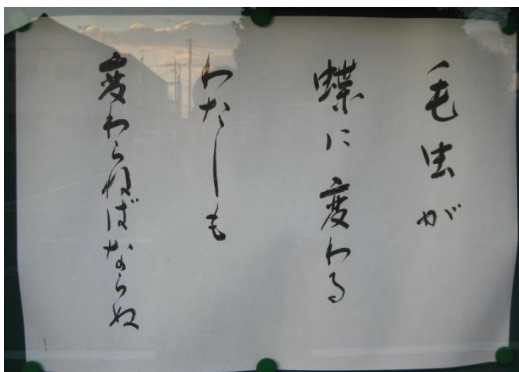 毛虫が
蝶に変わる
わたしも
変わらねばならぬ